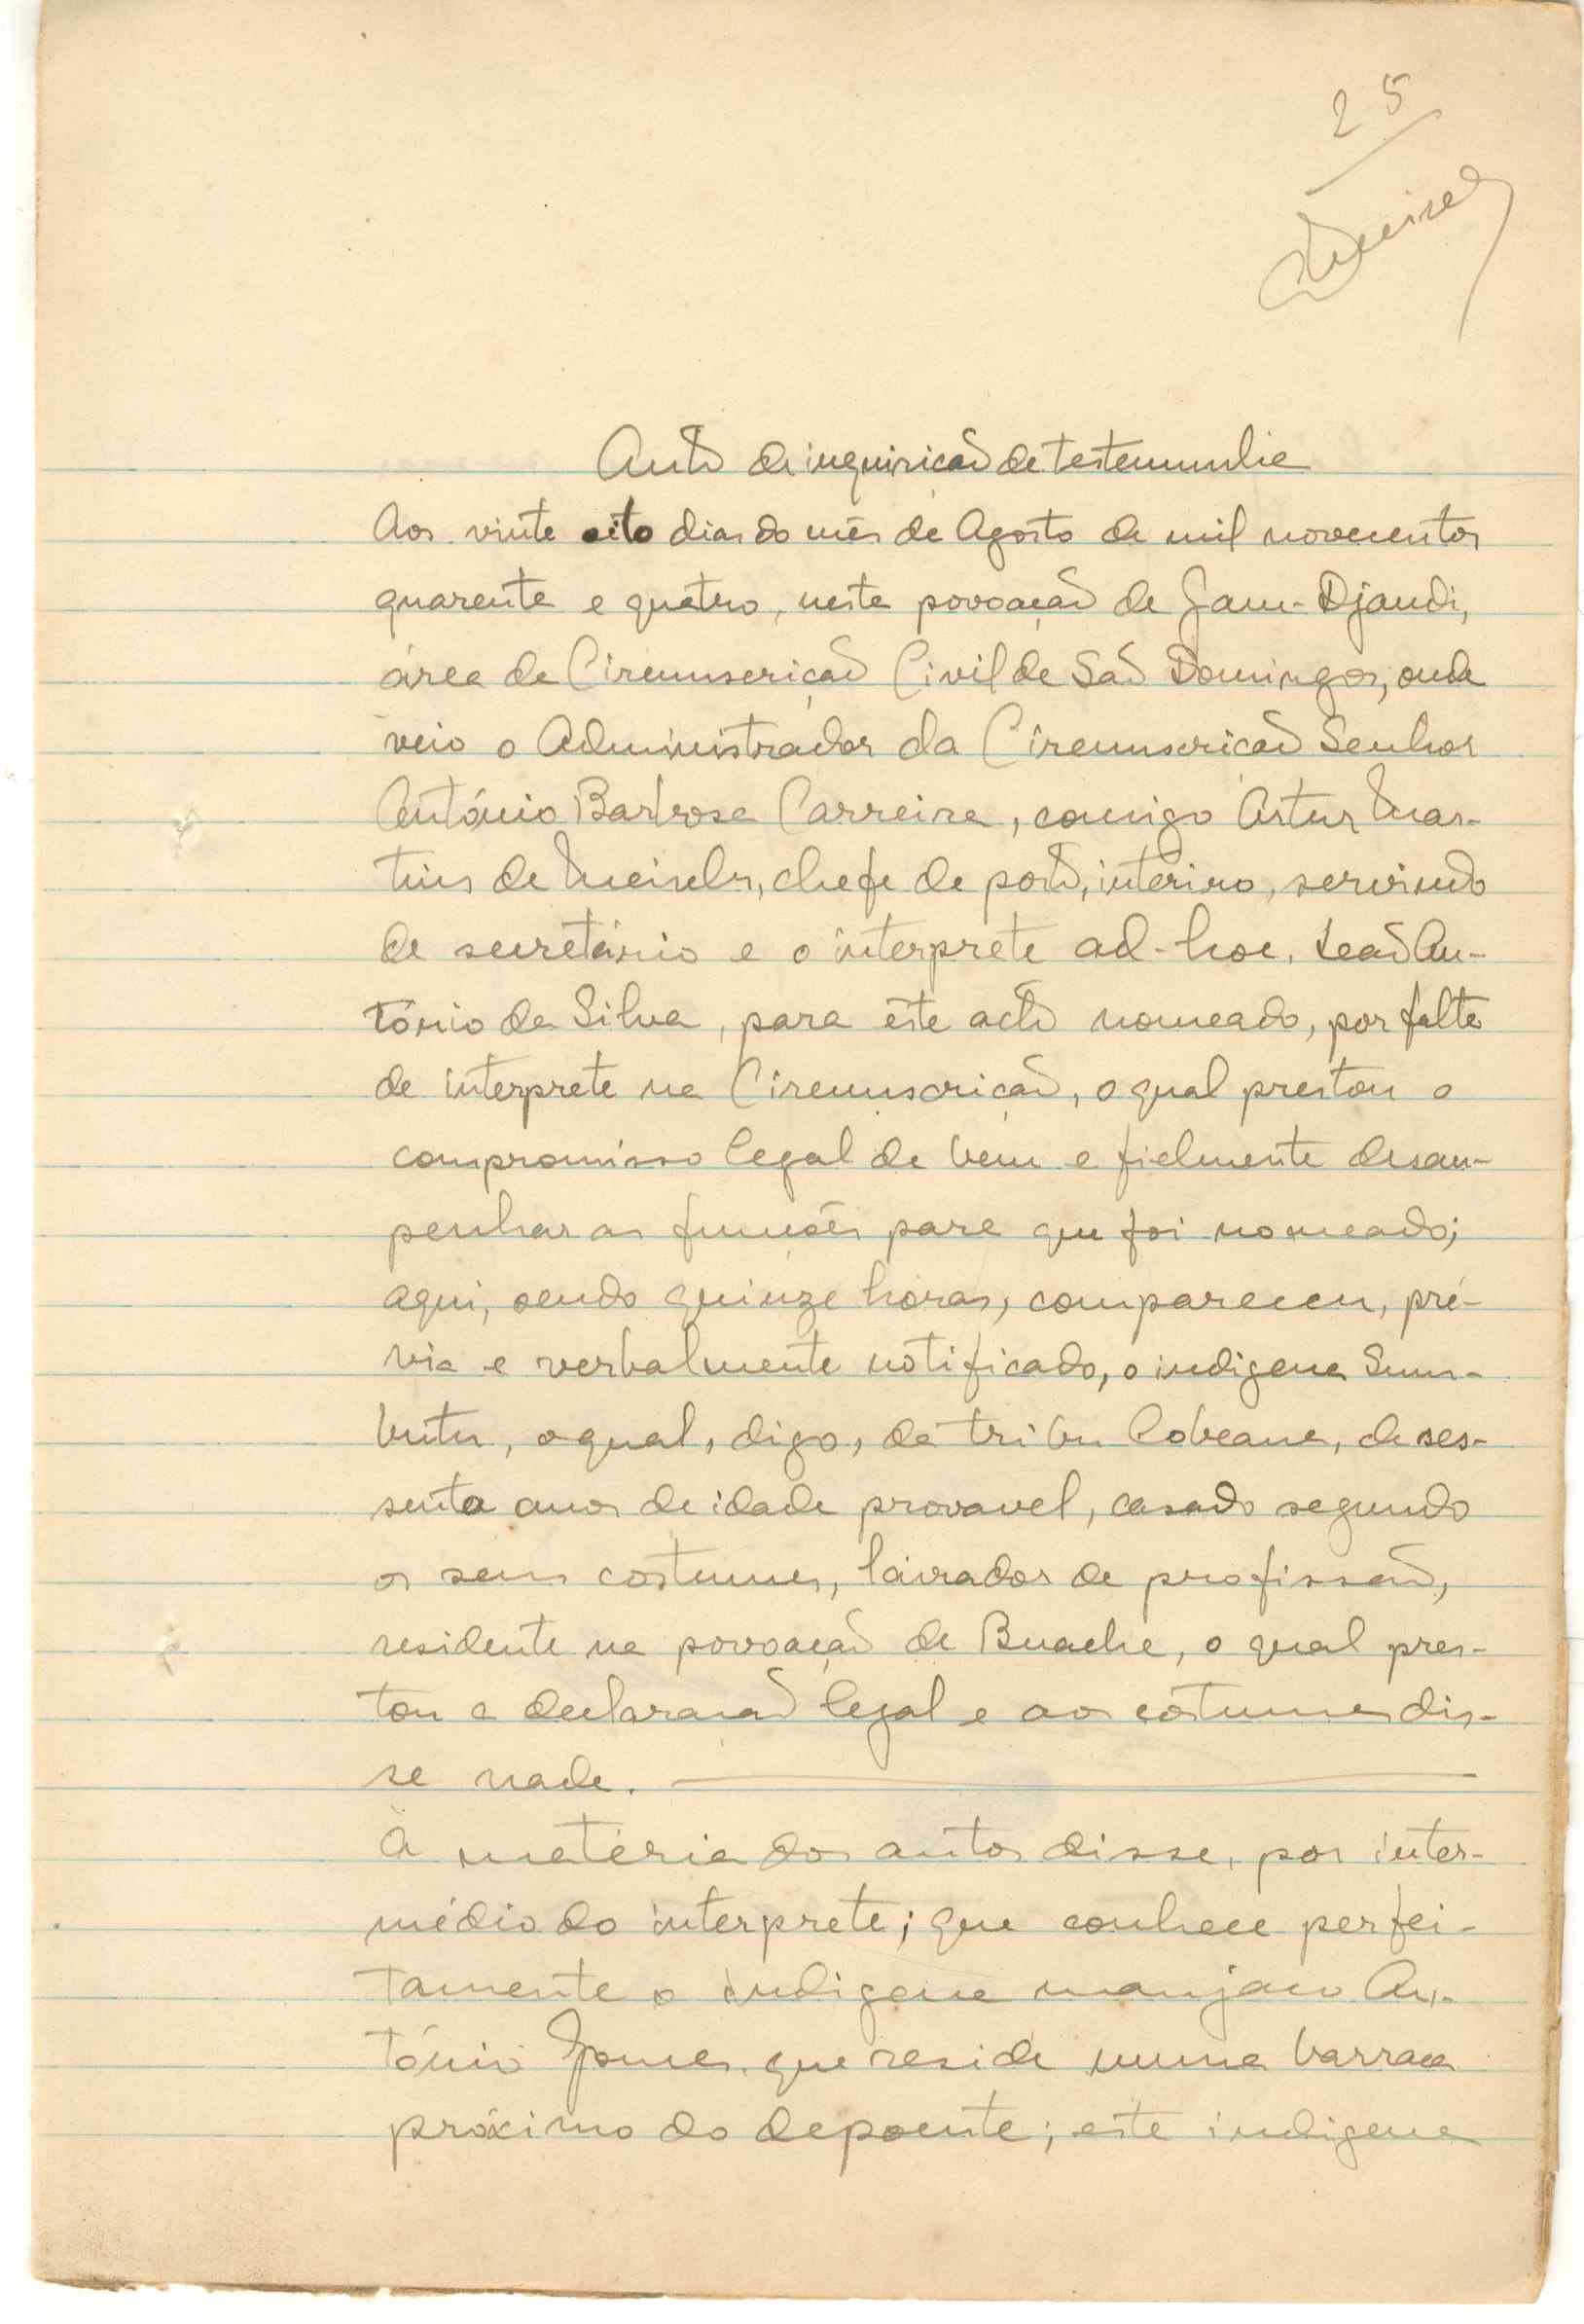 25
Auto de inquirição de testemunha
Aos vinte oito dias do mês de Agosto de mil novecentos
quarenta e quatro, nesta povoação de Jam-Djandi,
área da Circunscrição Civil de São Domingos, onde
veio o Administrador da Circunscrição Senhor
António Barbosa Carreira, comigo Artur Mar-
tins de Meireles, chefe de posto, interino, servindo
de secretário e o interprete ad-hoc, Leão An-
tónio da Silva, para êste acto nomeado, por falta
de interprete na Circunscrição, o qual prestou o
compromisso legal de bem e fielmente desem-
penhar as funções para que foi nomeado;
aqui, sendo quinze horas, compareceu, pré-
via e verbalmente notificado, o indigena Sum-
butu, o qual, digo, da tribu Cobeana, de ses-
senta anos de idade provavel, casado segundo
os seus costumes, lavrador de profissão,
residente na povoação de Buache, o qual pres-
tou a declaração legal e aos costumes dis-
se nada.
À matéria dos autos disse, por inter-
médio do interprete; que conhece perfei-
tamente o indigena manjaco An-
tónio Gomes que reside numa barraca
próximo do depoente; este indigena